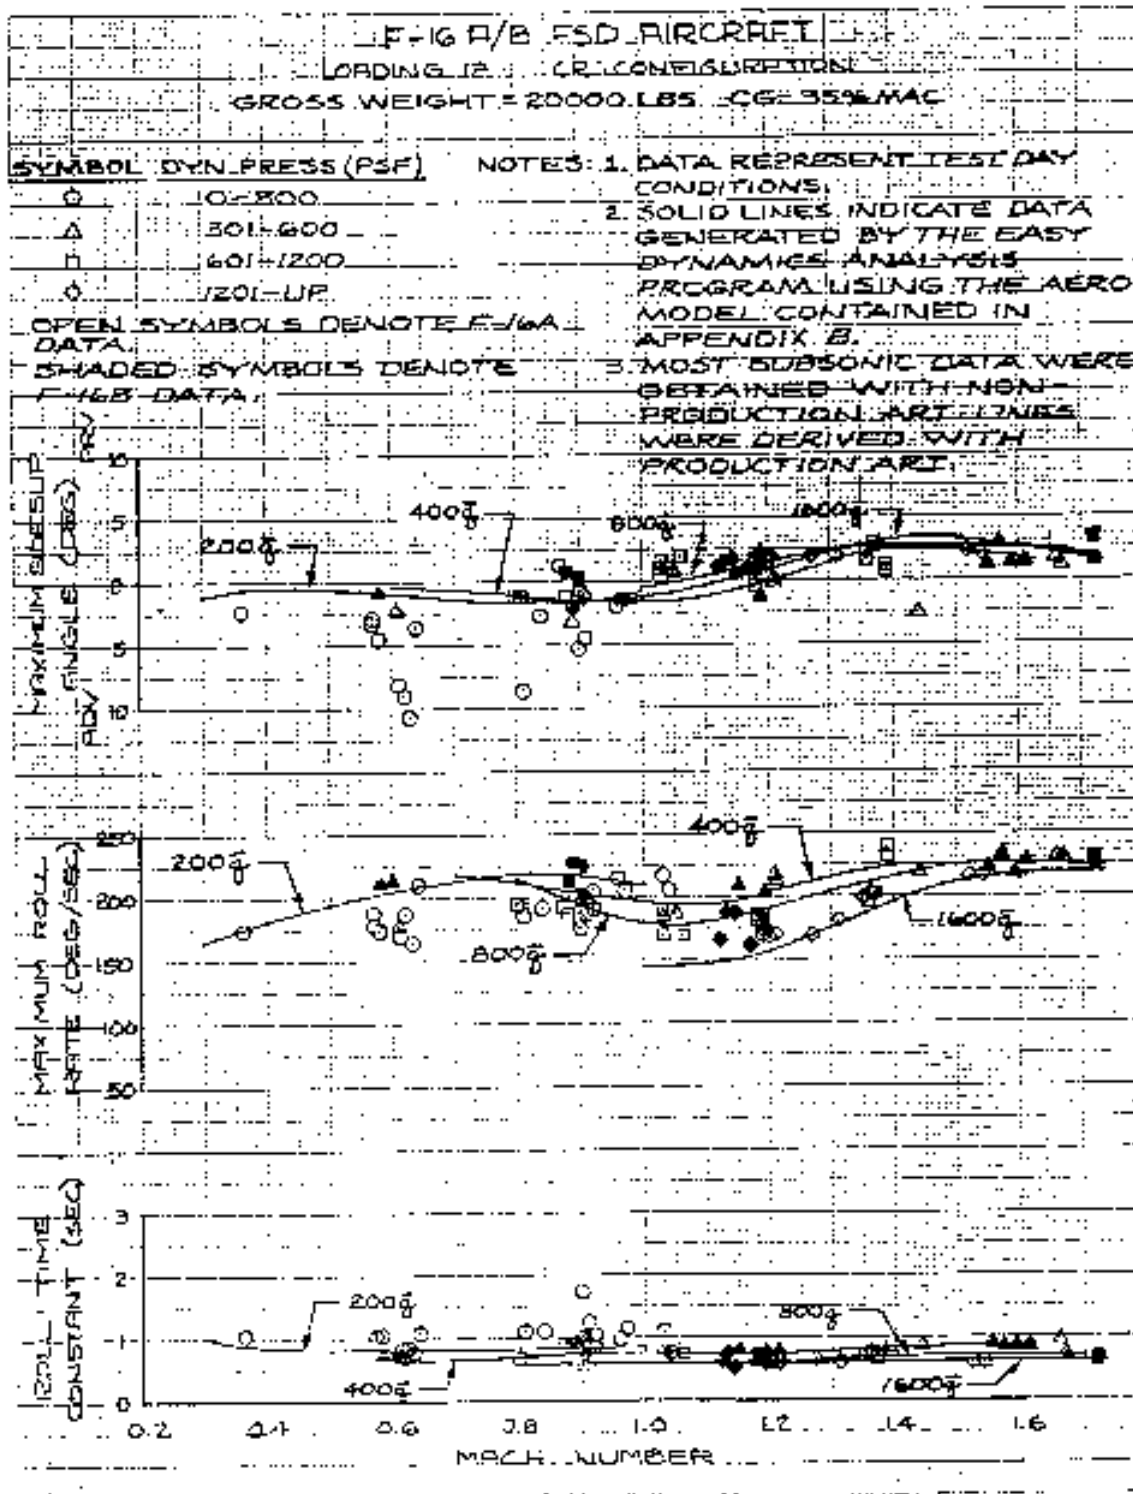 F-16 A/B FSD AIRCRAFT
LOADING 12 CR CONFIGURATION
GROSS WEIGHT = 20000 LBS CG= 35% MAC
SYMBOL DYN. PRESS (PSF)
0-300
301-600
601-1200
1201-UP
OPEN SYMBOLS DENOTE F-16A
DATA.
SHADED SYMBOLS DENOTE
F-16B DATA.
NOTES: 1. DATA REPRESENT TEST DAY
CONDITIONS.
2. SOLID LINES INDICATE DATA
GENERATED BY THE EASY
DYNAMICS ANALYSIS
PROGRAM USING THE AERO
MODEL CONTAINED IN
APPENDIX B.
3. MOST SUBSONIC DATA WERE
OBTAINED WITH NON-
PRODUCTION ARI. LINES
WERE DERIVED WITH
PRODUCTION ARI.
MAXIMUM SIDESLIP
ADV ANGLE (DEG) PRV
10
5
0
5
10
200 q̄
400 q̄
800 q̄
1600 q̄
MAXIMUM ROLL
RATE (DEG/SEC)
250
200
150
100
50
200 q̄
400 q̄
800 q̄
1600 q̄
ROLL TIME
CONSTANT (SEC)
3
2
1
0
200 q̄
400 q̄
800 q̄
1600 q̄
0.2 0.4 0.6 0.8 1.0 1.2 1.4 1.6
MACH NUMBER